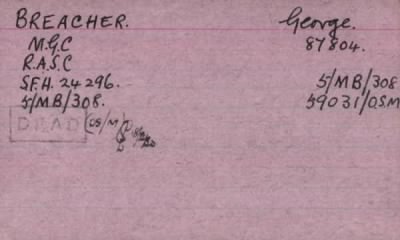 BREACHER. George.
M.G.C 87804.
R.A.S.C
S.F.H. 24296. 5/MB/308
5/MB/308. 59031/OSM
DEAD (OS/M)